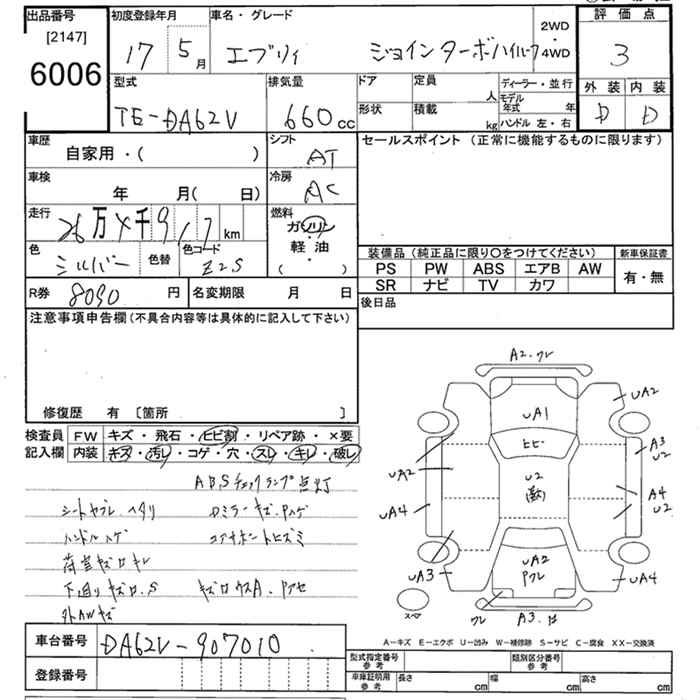 出品番号
[2147]
6006
初度登録年月
17 5月
車名・グレード
エブリィ ジョインターボハイルーフ
2WD
・
4WD
評価点
3
外装 内装
D D
型式
TE-DA62V
排気量
660cc
ドア
定員
人
形状
積載
kg
ディーラー・並行
モデル年式 年
ハンドル 左・右
車歴
自家用・( )
シフト
AT
セールスポイント (正常に機能するものに限ります)
車検
年 月( 日)
冷房
AC
走行
26万4千917km
燃料
ガソリン
・
軽油
・
( )
色
シルバー
色替
色コード
Z2S
装備品 (純正品に限り〇をつけてください)
PS PW ABS エアB AW
SR ナビ TV カワ
新車保証書
有・無
R券 8090円
名変期限 月 日
後日品
注意事項申告欄 (不具合内容等は具体的に記入して下さい)
修復歴 有 [箇所 ]
検査員記入欄
FW キズ・飛石・ヒビ割・リペア跡・×要
内装 キズ・汚レ・コゲ・穴・スレ・キレ・破レ
ABSチェックランプ点灯
シートヤブレ、ヘタリ
ハンドルハゲ
荷室キズロキレ
下廻りキズロ、S
外AWキズ
A2.ワレ
UA1
UA2
ヒビ
A3
U2
UA2
U2
A4
U2
UA4
UA2
Pワレ
UA3
UA4
スペア
ワレ
A3.
A-キズ E-エクボ U-凹み W-補修跡 S-サビ C-腐食 XX-交換済
車台番号 DA62V-907010
登録番号
型式指定番号
参考
類別区分番号
参考
車庫証明用
参考
長さ cm
幅 cm
高さ cm